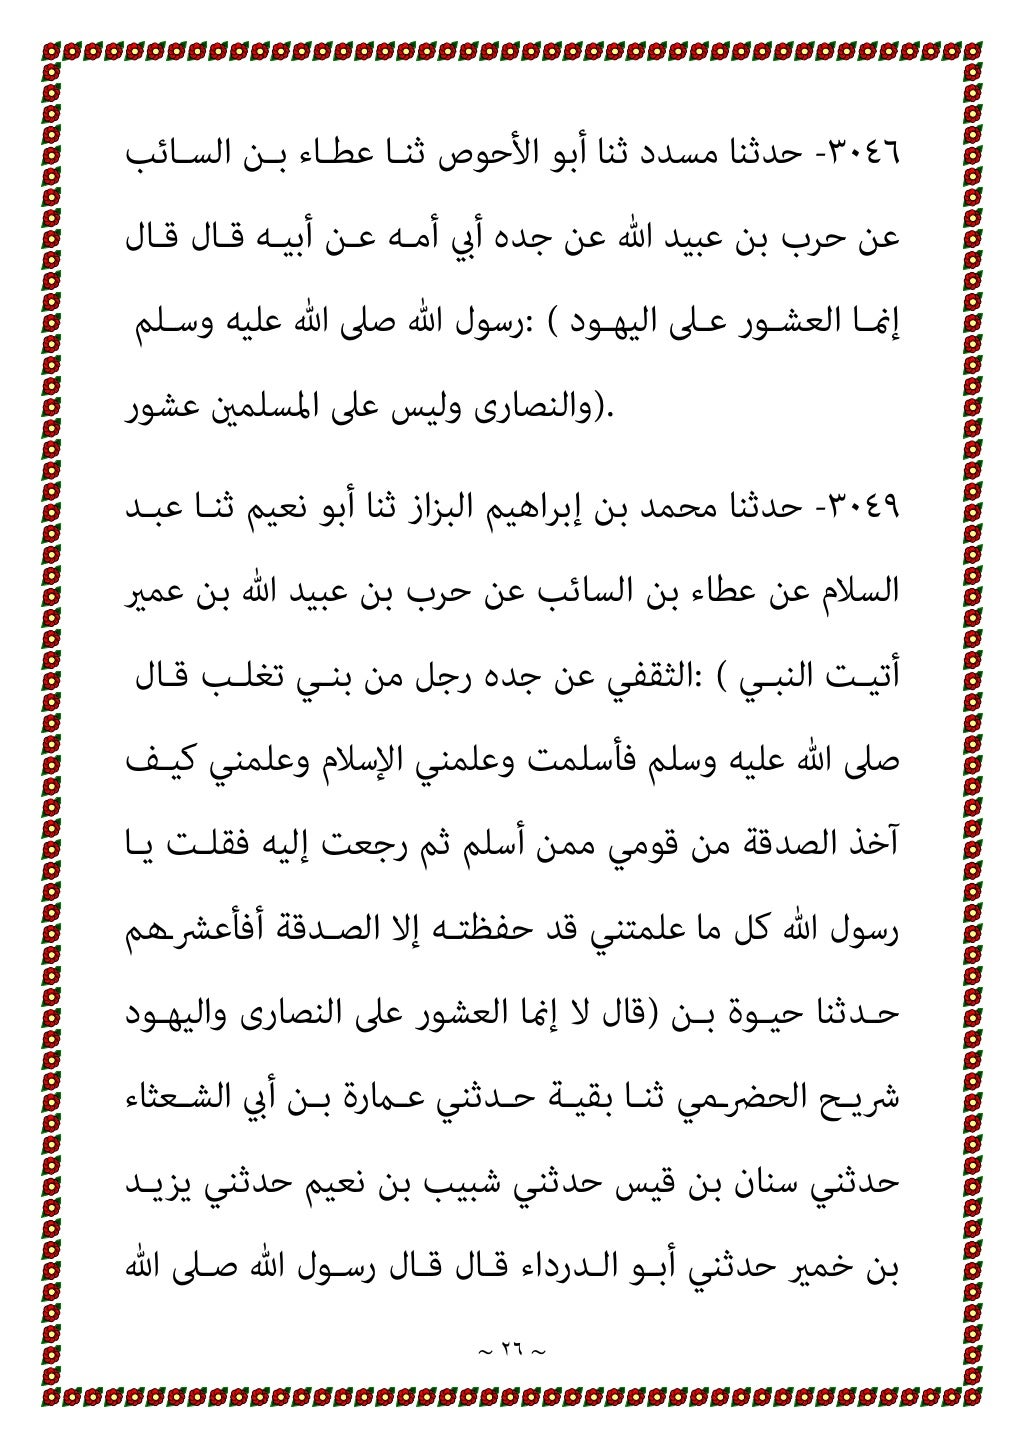 ٣٠٤٦- حدثنا مسدد ثنا أبو الأحوص ثنـا عطـاء بـن السـائب
عن حرب بن عبيد الله عن جده أبي أمـه عـن أبيـه قـال قـال
إنمـا العشـور عـلى اليهـود ) :رسول الله صلى الله عليه وسـلم
والنصارى وليس على المسلمين عشور).
٣٠٤٩- حدثنا محمد بن إبراهيم البزاز ثنا أبو نعيم ثنـا عبـد
السلام عن عطاء بن السائب عن حرب بن عبيد الله بن عمير
أتيـت النبـي ) :الثقفي عن جده رجل من بنـي تغلـب قـال
صلى الله عليه وسلم فأسلمت وعلمني الإسلام وعلمني كيـف
آخذ الصدقة من قومي ممن أسلم ثم رجعت إليه فقلـت يـا
رسول الله كل ما علمتني قد حفظتـه إلا الصـدقة أفأعشرـهم
حـدثنا حيـوة بـن (قال لا إنما العشور على النصارى واليهـود
شريـح الحضرـمي ثنـا بقيـة حـدثني عـمارة بـن أبي الشـعثاء
حدثني سنان بن قيس حدثني شبيب بن نعيم حدثني يزيـد
بن خمير حدثني أبـو الـدرداء قـال قـال رسـول الله صـلى الله
~ ٢٦ ~